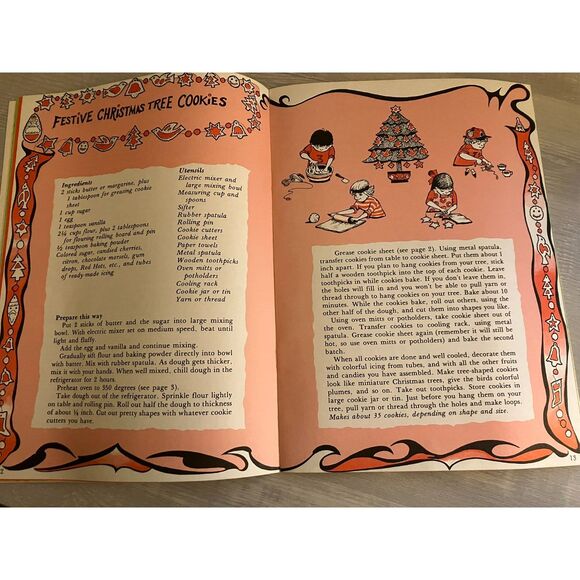 FESTIVE CHRISTMAS TREE COOKIES
Ingredients
2 sticks butter or margarine, plus
1 tablespoon for greasing cookie
sheet
1 cup sugar
1 egg
1 teaspoon vanilla
2¼ cups flour, plus 2 tablespoons
for flouring rolling board and pin
½ teaspoon baking powder
Colored sugar, candied cherries,
citron, chocolate morsels, gum
drops, Red Hots, etc., and tubes
of ready-made icing
Utensils
Electric mixer and
large mixing bowl
Measuring cup and
spoons
Sifter
Rubber spatula
Rolling pin
Cookie cutters
Cookie sheet
Paper towels
Metal spatula
Wooden toothpicks
Oven mitts or
potholders
Cooling rack
Cookie jar or tin
Yarn or thread
Prepare this way
Put 2 sticks of butter and the sugar into large mixing
bowl. With electric mixer set on medium speed, beat until
light and fluffy.
Add the egg and vanilla and continue mixing.
Gradually sift flour and baking powder directly into bowl
with batter. Mix with rubber spatula. As dough gets thicker,
mix it with your hands. When well mixed, chill dough in the
refrigerator for 2 hours.
Preheat oven to 350 degrees (see page 3).
Take dough out of the refrigerator. Sprinkle flour lightly
on table and rolling pin. Roll out half the dough to thickness
of about ¼ inch. Cut out pretty shapes with whatever cookie
cutters you have.
Grease cookie sheet (see page 2). Using metal spatula,
transfer cookies from table to cookie sheet. Put them about 1
inch apart. If you plan to hang cookies from your tree, stick
half a wooden toothpick into the top of each cookie. Leave
toothpicks in while cookies bake. If you don't leave them in,
the holes will fill in and you won't be able to pull yarn or
thread through to hang cookies on your tree. Bake about 10
minutes. While the cookies bake, roll out others, using the
other half of the dough, and cut them into shapes you like.
Using oven mitts or potholders, take cookie sheet out of
the oven. Transfer cookies to cooling rack, using metal
spatula. Grease cookie sheet again (remember it will still be
hot, so use oven mitts or potholders) and bake the second
batch.
When all cookies are done and well cooled, decorate them
with colorful icing from tubes, and with all the other fruits
and candies you have assembled. Make tree-shaped cookies
look like miniature Christmas trees, give the birds colorful
plumes, and so on. Take out toothpicks. Store cookies in
large cookie jar or tin. Just before you hang them on your
tree, pull yarn or thread through the holes and make loops.
Makes about 35 cookies, depending on shape and size.
2
13